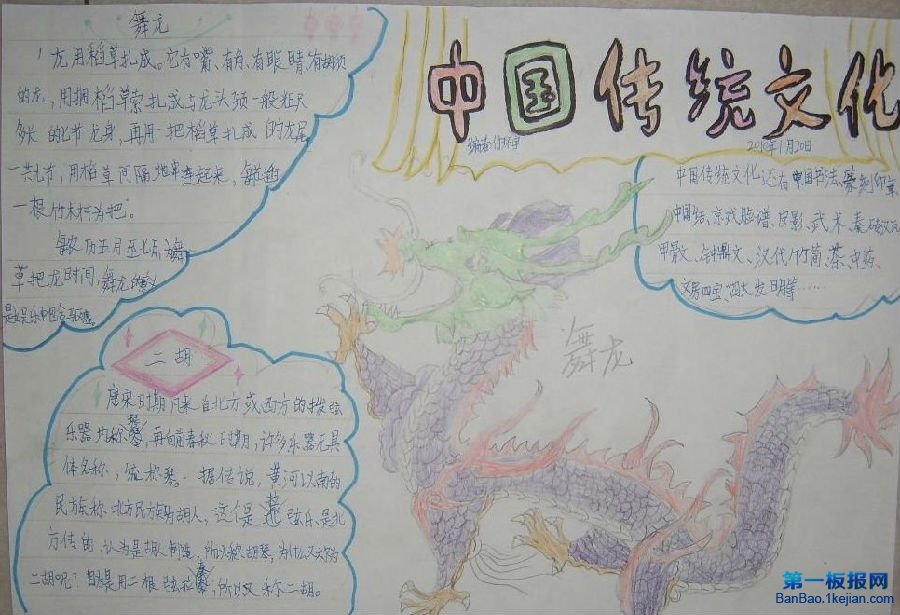 中国传统文化
2010年1月20日
舞龙
龙用稻草扎成。它有嘴、有角、有眼睛、有胡须
的龙,用捆稻草索扎成与龙头颈一般粗尺
多长的七节龙身,再用一把稻草扎成的龙尾
一共九节,用稻草间隔地牵连起来,每
一根竹木棒为把。
农历五月至七月舞
草把龙时间,舞龙的
中国传统文化还有中国书法、篆刻印章、
中国结、京戏脸谱、皮影、武术、秦砖汉瓦
甲骨文、钟鼎文、汉代竹简、茶、中药、
文房四宝、四大发明等……
舞龙
二胡
唐宋时期凡来自北方或西方的拨弦
乐器均称琴,再向前春秋时期,许多乐器无具
体名称,统称琴。据传说,黄河以南的
民族称北方民族为胡人,这个是弦乐是北
方传由,认为是胡人制造,所以称胡琴,为什么又六为
二胡呢?自是用二根弦拉奏,所以又称二胡。
第一板报网
BanBao.1kejian.com